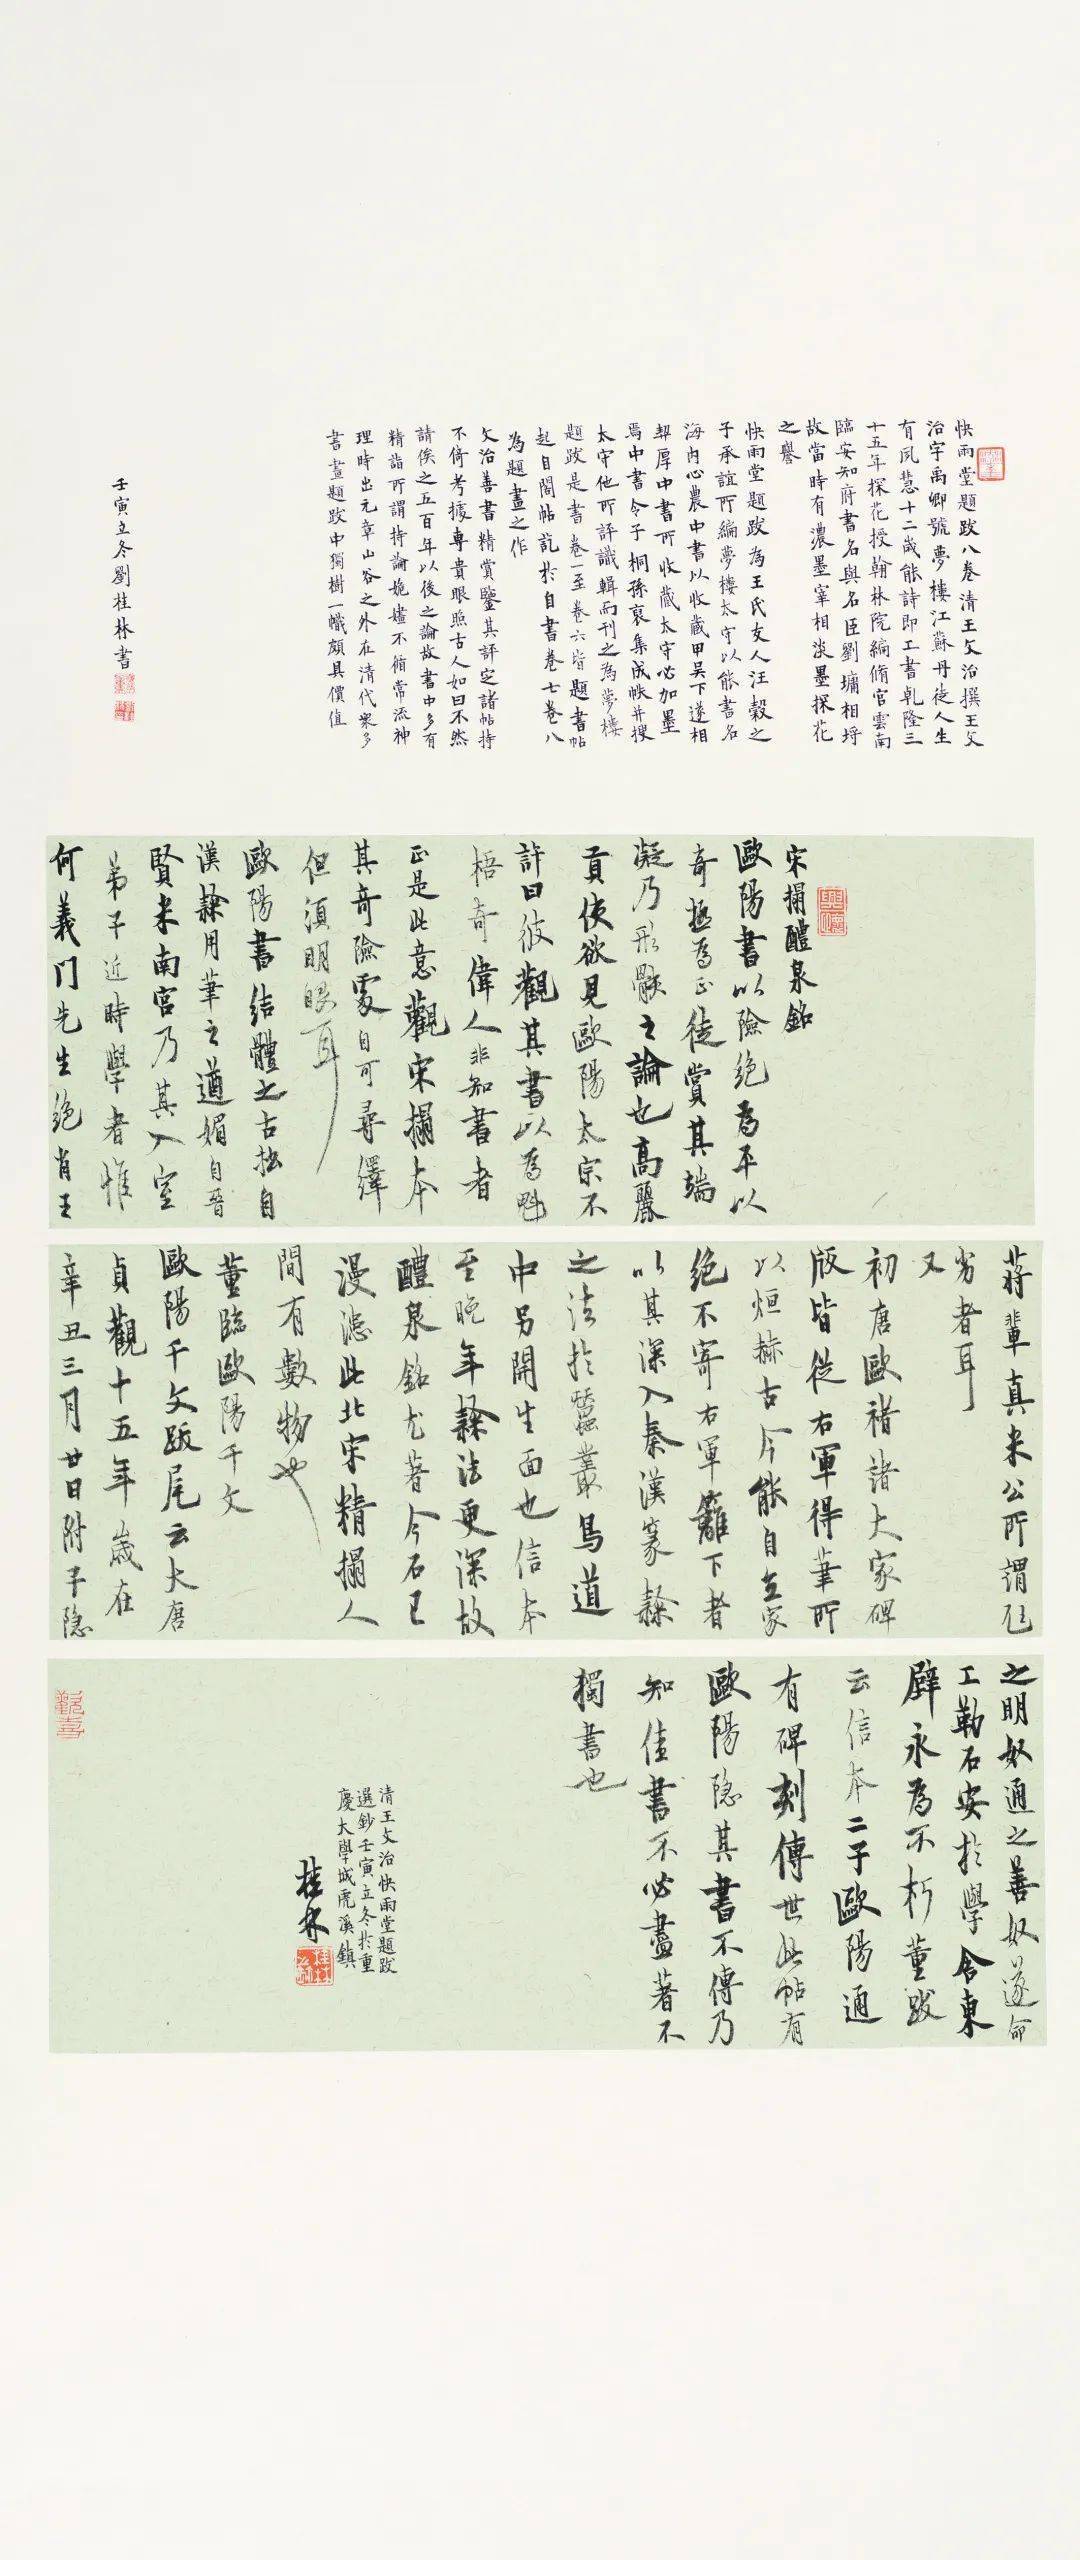 快雨堂題跋八卷清王文治撰王文
治字禹卿號夢樓江蘇丹徒人生
有夙慧十二歲能詩即工書乾隆三
十五年探花授翰林院編脩官雲南
臨安知府書名與名臣劉墉相埒
故當時有濃墨宰相淡墨探花
之譽
快雨堂題跋為王氏友人汪穀之
子承誼所編夢樓太守以能書名
海內心農中書以收藏甲吳下遂相
契厚中書所收藏太守必加墨
焉中書令子桐孫裒集成帙并搜
太守他所評識輯而刊之為夢樓
題跋是書卷一至卷六皆題書帖
起自閣帖訖於自書卷七卷八
為題畫之作
文治善書精賞鑒其評定諸帖持
不倚考據專貴眼照古人如曰不然
請俟之五百年以後之論故書中多有
精詣所謂持論娓嫿不猶常流神
理時出元章山谷之外在清代眾多
書畫題跋中獨樹一幟頗具價值
壬寅立冬劉桂林書
宋搨醴泉銘
歐陽書以險絕為平以
奇極為正徒賞其端
凝乃形骸之論也高麗
貢使欲見歐陽太宗不
許曰彼觀其書以為魁
梧奇偉人非知書者
正是此意觀宋搨本
其奇險處自可尋繹
但須明眼耳
歐陽書結體之古拙自
漢隸用筆之遒媚自晉
賢米南宮乃其入室
弟子近時學者惟
何義門先生絕肖王
蔣輩真米公所謂乞
劣者耳
又
初唐歐褚諸大家碑
版皆從右軍得筆所
以烜赫古今能自立家
絕不寄右軍籬下者
以其深入秦漢篆隸
之法於蠶叢鳥道
中另開生面也信本
至晚年隸法更深故
醴泉銘尤著今石已
漫漶此北宋精搨人
間有數物也
董臨歐陽千文
歐陽千文跋尾云大唐
貞觀十五年歲在
辛丑三月廿日附子隱
之明奴通之善奴遂命
工勒石安於學舍東
壁永為不朽董跋
云信本二子歐陽通
有碑刻傳世此帖有
歐陽隱其書不傳乃
知佳書不必盡著不
獨書也
清王文治快雨堂題跋
選鈔壬寅立冬於重
慶大學城虎溪鎮
桂林